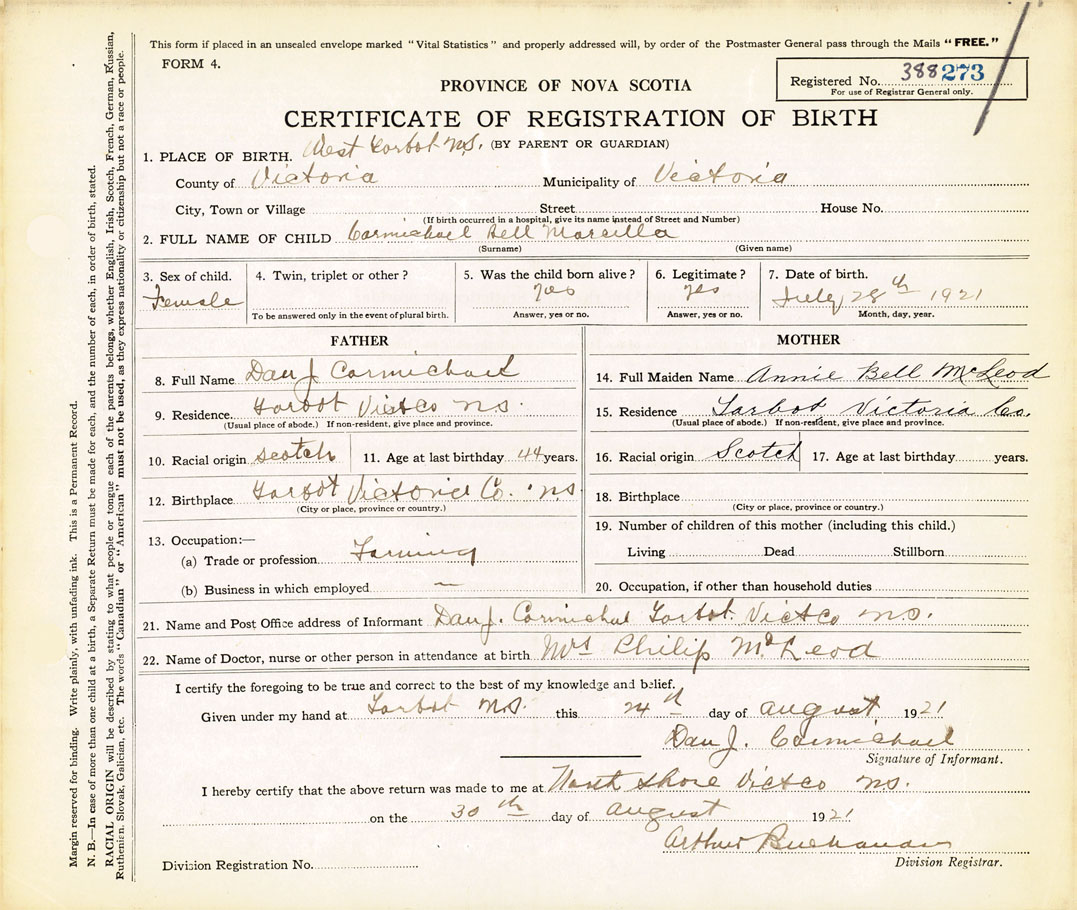 This form if placed in an unsealed envelope marked "Vital Statistics" and properly addressed will, by order of the Postmaster General pass through the Mails "FREE."
FORM 4.
Registered No. 388 273
For use of Registrar General only.
PROVINCE OF NOVA SCOTIA
CERTIFICATE OF REGISTRATION OF BIRTH
(BY PARENT OR GUARDIAN)
1. PLACE OF BIRTH. West Tarbot N.S.
County of Victoria Municipality of Victoria
City, Town or Village Street House No.
(If birth occurred in a hospital, give its name instead of Street and Number)
2. FULL NAME OF CHILD Carmichael Bell Marcilla
(Surname) (Given name)
3. Sex of child. Female
4. Twin, triplet or other?
To be answered only in the event of plural birth.
5. Was the child born alive? yes
Answer, yes or no.
6. Legitimate? yes
Answer, yes or no.
7. Date of birth. July 28th 1921
Month, day, year.
FATHER
8. Full Name Dan J Carmichael
9. Residence. Tarbot Vict Co N.S.
(Usual place of abode.) If non-resident, give place and province.
10. Racial origin Scotch 11. Age at last birthday 44 years.
12. Birthplace Tarbot Victoria Co. N.S
(City or place, province or country.)
13. Occupation:—
(a) Trade or profession Farming
(b) Business in which employed —
MOTHER
14. Full Maiden Name Annie Bell McLeod
15. Residence Tarbot Victoria Co.
(Usual place of abode.) If non-resident, give place and province.
16. Racial origin Scotch 17. Age at last birthday years.
18. Birthplace
(City or place, province or country.)
19. Number of children of this mother (including this child.)
Living Dead Stillborn
20. Occupation, if other than household duties
21. Name and Post Office address of Informant Dan J. Carmichael Tarbot. Vict Co N.S.
22. Name of Doctor, nurse or other person in attendance at birth Mrs Philip McLeod
I certify the foregoing to be true and correct to the best of my knowledge and belief.
Given under my hand at Tarbot N.S. this 24th day of August 1921
Dan J. Carmichael
Signature of Informant.
I hereby certify that the above return was made to me at North Shore Vict Co N.S.
on the 30th day of August 1921
Arthur Buchanan
Division Registrar.
Division Registration No.
Margin reserved for binding. Write plainly, with unfading ink. This is a Permanent Record.
N. B.—In case of more than one child at a birth, a Separate Return must be made for each, and the number of each, in order of birth, stated.
RACIAL ORIGIN will be described by stating to what people or tongue each of the parents belongs, whether English, Irish, Scotch, French, German, Russian,
Ruthenian, Slovak, Galician, etc. The words "Canadian" or "American" must not be used, as they express nationality or citizenship but not a race or people.